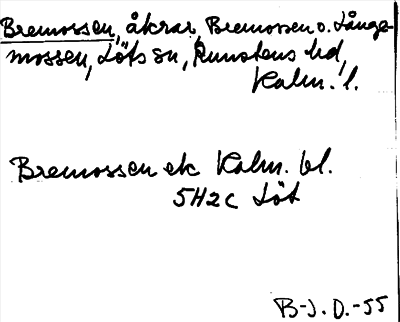 Bremossen, åkrar, Bremossen o. Långe-
mossen, Löts sn, Runstens hd,
Kalm. l.
Bremossen ek Kalm. bl.
5H2c Löt
B-J. D. -55